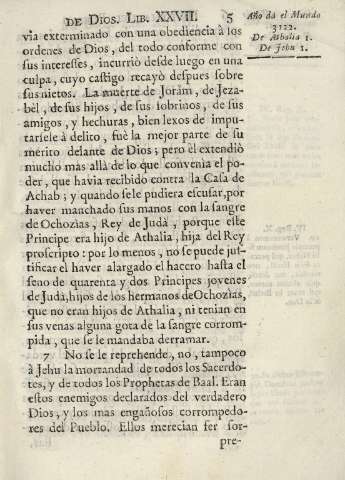 DE DIOS. LIB. XXVII. 5
Año da el Mundo
3122.
De Athalia 1.
De Jehu 1.
via exterminado con una obediencia à los
ordenes de Dios, del todo conforme con
sus interesses, incurriò desde luego en una
culpa, cuyo castigo recayò despues sobre
sus nietos. La muerte de Joràm, de Jeza-
bèl, de sus hijos, de sus sobrinos, de sus
amigos, y hechuras, bien lexos de impu-
tarsele à delito, fuè la mejor parte de su
merito delante de Dios; pero èl extendiò
mucho mas allà de lo que convenia el po-
der, que havia recibido contra la Casa de
Achab; y quando se le pudiera escusar, por
haver manchado sus manos con la sangre
de Ochozìas, Rey de Judà, porque este
Principe era hijo de Athalia, hija del Rey
proscripto: por lo menos, no se puede jus-
tificar el haver alargado el hacero hasta el
seno de quarenta y dos Principes jovenes
de Judà, hijos de los hermanos de Ochozìas,
que no eran hijos de Athalia, ni tenian en
sus venas alguna gota de la sangre corrom-
pida, que se le mandaba derramar.
7 No se le reprehende, no, tampoco
à Jehu la mortandad de todos los Sacerdo-
tes, y de todos los Prophetas de Baal. Eran
estos enemigos declarados del verdadero
Dios, y los mas engañosos corrompedo-
res del Pueblo. Ellos merecian ser sor-
pre-